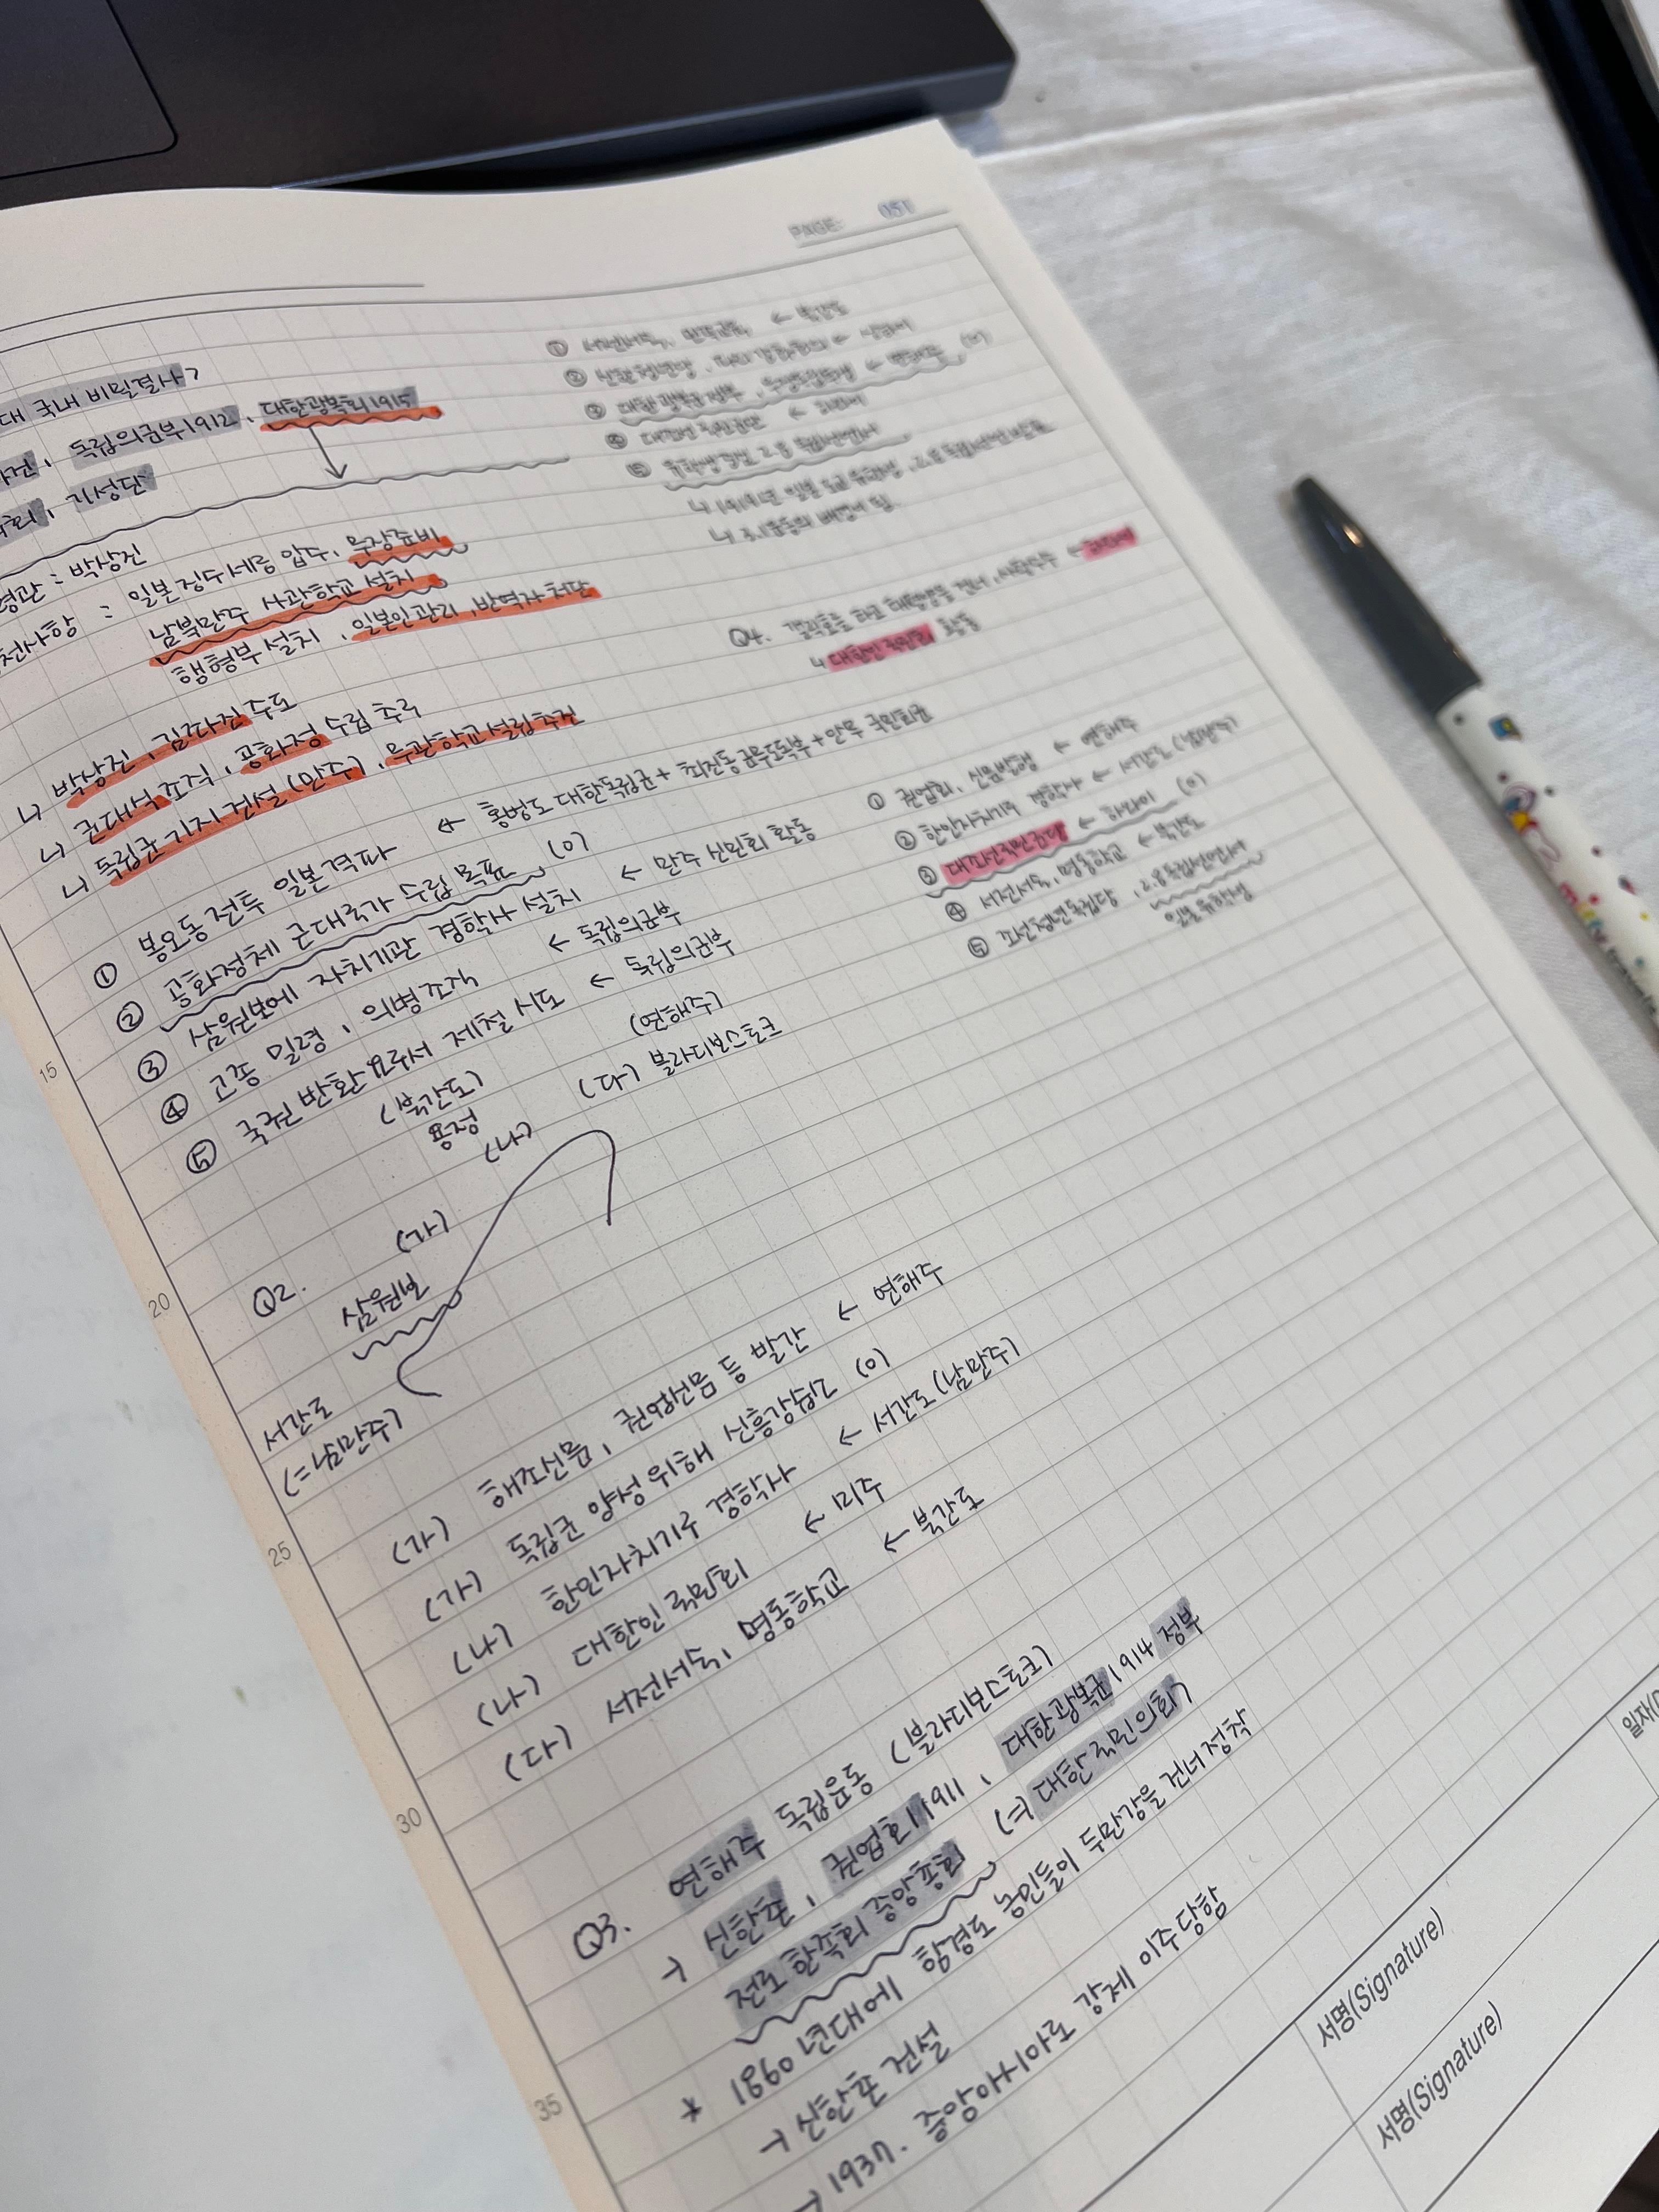 PAGE: 051
대 국내 비밀결사>
독립의군부1912, 대한광복회1915
기성단
박상진
일본 징수세 입수, 무장준비
남북만주 사관학교 설치
행형부 설치, 일본인관리, 반역자 처단
↳ 박상진, 김좌진 주도
↳ 군대식 조직, 공화정 수립 추구
↳ 독립군 기지 건설 (만주), 무관학교 설립 추진
① 봉오동 전투 일본 격파 ← 홍범도 대한독립군 + 최진동 군무도독부 + 안무 국민회군
② 공화정체 근대국가 수립 목표 (O)
③ 삼원보에 자치기관 경학사 설치 ← 만주 신민회 활동
④ 고종 밀령, 의병조직 ← 독립의군부
⑤ 국권 반환 요구서 제출 시도 → 독립의군부
Q2.
(가)
삼원보
서간도
(=남만주)
(북간도)
용정
(나)
(연해주)
(다) 블라디보스토크
(가) 해조신문, 권업신문 등 발간 → 연해주
(가) 독립군 양성 위해 신흥강습 (O)
(나) 한인자치기구 경학사 → 서간도 (남만주)
(나) 대한인 국민회 → 미주
(다) 서전서숙, 명동학교 → 북간도
Q3. 연해주 독립운동 (블라디보스토크)
신한촌, 권업회 1911, 대한광복군 1914 정부
전로 한족회 중앙총회 (→ 대한국민의회)
* 1860년대에 함경도 농민들이 두만강을 건너 정착
신한촌 건설
1937. 중앙아시아로 강제 이주당함
① 서전서숙, ← 북간도
② 신한청년당, 파리강화회의 ← 상하이
③ 대한광복군정부, ← 연해주 (O)
④ 대조선 국민군단 ← 하와이
⑤ 유학생 중심 2.8 독립선언서
↳ 1919년 일본 도쿄 유학생, 2.8 독립선언
↳ 3.1운동의 배경이 됨.
Q4. 갤릭호를 타고 태평양을 건너, 사탕수수 ← 하와이
↳ 대한인 국민회 활동
① 권업회, 신문발행 ← 연해주
② 한인자치기구 경학사 ← 서간도 (남만주)
③ 대조선국민군단 ← 하와이 (O)
④ 서전서숙, 명동학교 ← 북간도
⑤ 조선청년독립단, 2.8독립선언서
일본 유학생
15
20
25
30
35
서명(Signature)
서명(Signature)